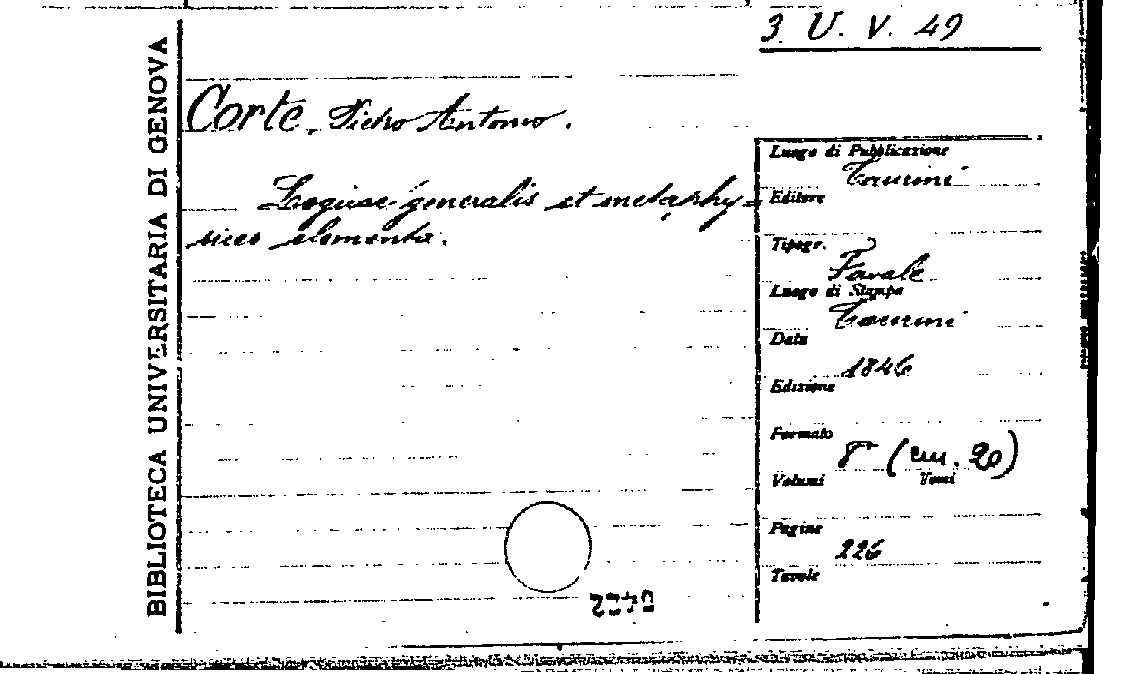 3 U. V. 49
BIBLIOTECA UNIVERSITARIA DI GENOVA
Corte, Pietro Antonio.
Logicae generalis et metaphy=
sices elementa.
Luogo di Pubblicazione
Taurini
Editore
Tipogr.
Favale
Luogo di Stampa
Taurini
Data
1846
Edizione
Formato
8° (cm. 20)
Volumi Tomi
Pagine
226
Tavole